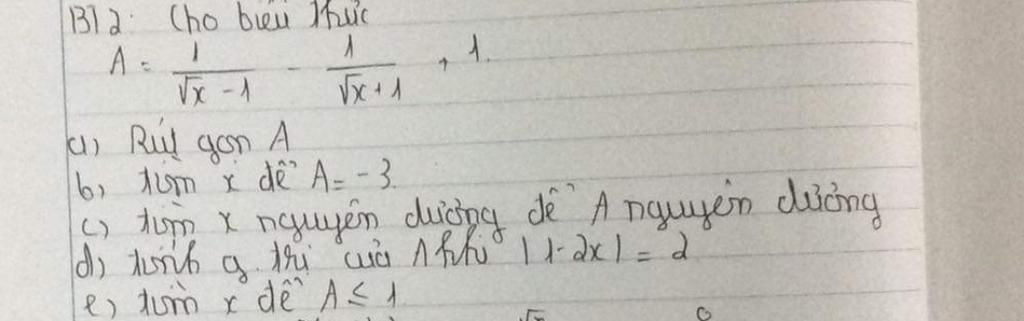 BT2: Cho biểu thức
A = 1/(√x - 1) - 1/(√x + 1) + 1.
a) Rút gọn A
b) tìm x để A = -3.
c) tìm x nguyên dương để A nguyên dương
d) tính g.trị của A khi |1-2x| = 2
e) tìm x để A ≤ 1.